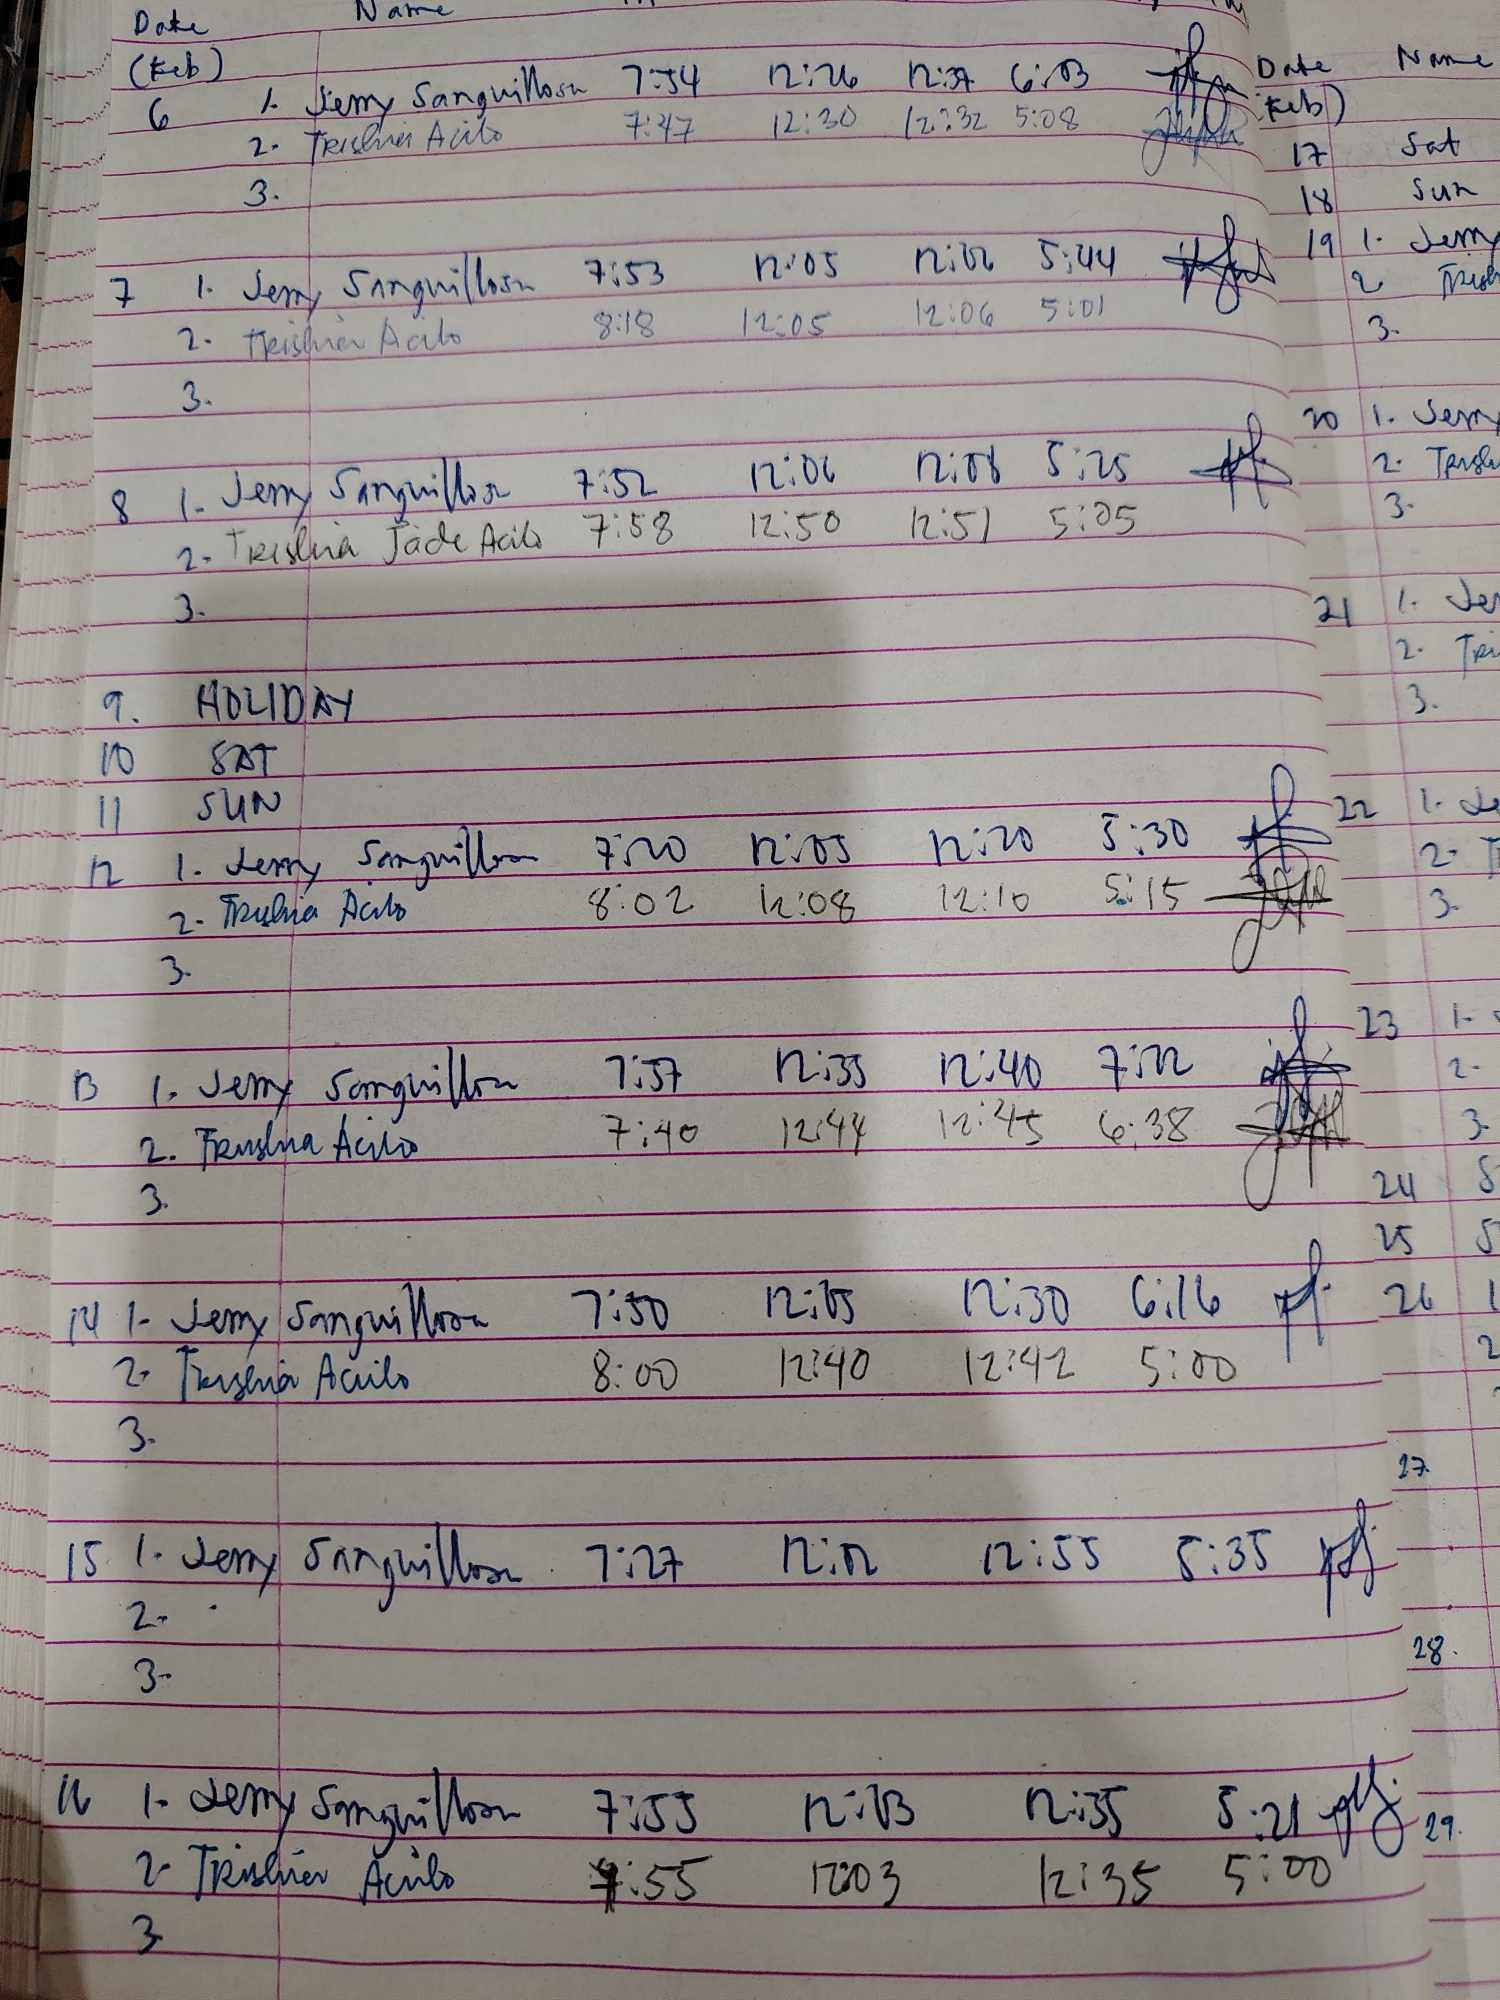 Date Name
(Feb)
6 1. Jerry Sanguillosa 7:54 12:26 12:37 6:03
2. Trishia Acilo 7:47 12:30 12:32 5:08
3.
7 1. Jerry Sanguillosa 7:53 12:05 5:44
2. Trishia Acilo 8:18 12:05 12:06 5:01
3.
8 1. Jerry Sanguillosa 7:52 12:06 12:08 5:25
2. Trishia Jade Acilo 7:58 12:50 12:51 5:05
3.
9. HOLIDAY
10 SAT
11 SUN
12 1. Jerry Sanguillosa 7:20 12:05 12:20 5:30
2. Trishia Acilo 8:02 12:08 12:10 5:15
3.
13 1. Jerry Sanguillosa 7:57 12:35 12:40 7:22
2. Trishia Acilo 7:40 12:44 12:45 6:38
3.
14 1- Jerry Sanguillosa 7:50 12:05 12:30 6:16
2- Trishia Acilo 8:00 12:40 12:42 5:00
3-
15 1- Jerry Sanguillosa 7:27 12:02 12:55 5:35
2-
3-
16 1- Jerry Sanguillosa 7:55 12:03 12:35 5:21
2- Trishia Acilo 7:55 12:03 12:35 5:00
3
Date Name
Feb)
17 Sat
18 Sun
19 1. Jerry
2
3.
20 1. Jerry
2.
3.
21 1.
2.
3.
22 1.
2-
3-
23 1-
2-
3-
24
25
26
27.
28.
29.